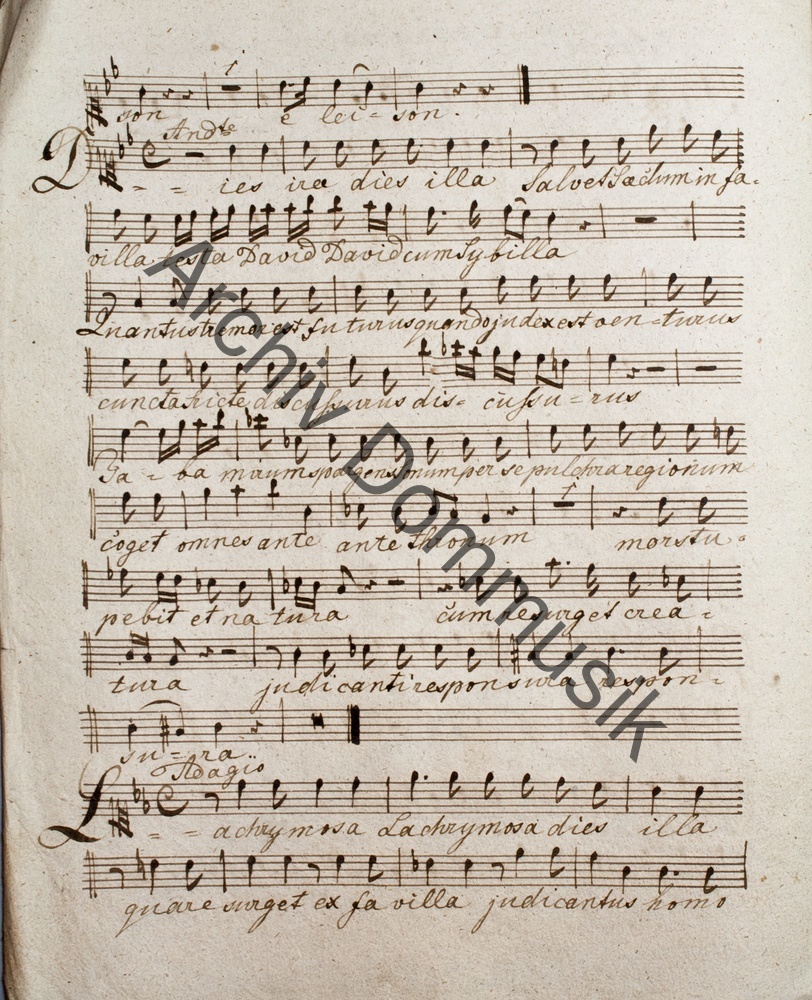 son e lei - son.
Andte
D - = ies irae dies illa Salvet Saeclum in fa-
villa testa David David cum Sybilla
Quantus tremor est fu turus quando judex est ven - turus
cuncta stricte discussurus dis - cussu = rus
Tu - ba mirum spargens sonum per se pulchra regionum
coget omnes ante ante thronum mors stu -
pebit et na tura cum resurget crea -
tura judicanti responsura respon -
su = ra..
Adagio
L = = achrymosa Lachrymosa dies illa
qua re surget ex fa villa judicantus homo
Archiv Dommusik